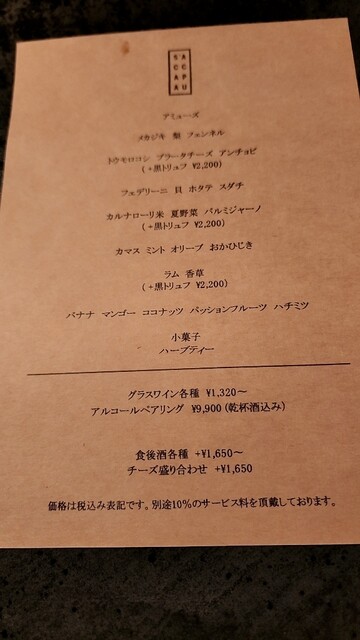 SACCAPAU
アミューズ
メカジキ 梨 フェンネル
トウモロコシ ブラータチーズ アンチョビ
(+黒トリュフ ¥2,200)
フェデリーニ 貝 ホタテ スダチ
カルナローリ米 夏野菜 パルミジャーノ
(+黒トリュフ ¥2,200)
カマス ミント オリーブ おかひじき
ラム 香草
(+黒トリュフ ¥2,200)
バナナ マンゴー ココナッツ パッションフルーツ ハチミツ
小菓子
ハーブティー
グラスワイン各種 ¥1,320〜
アルコールペアリング ¥9,900(乾杯酒込み)
食後酒各種 +¥1,650〜
チーズ盛り合わせ +¥1,650
価格は税込み表記です。別途10%のサービス料を頂戴しております。